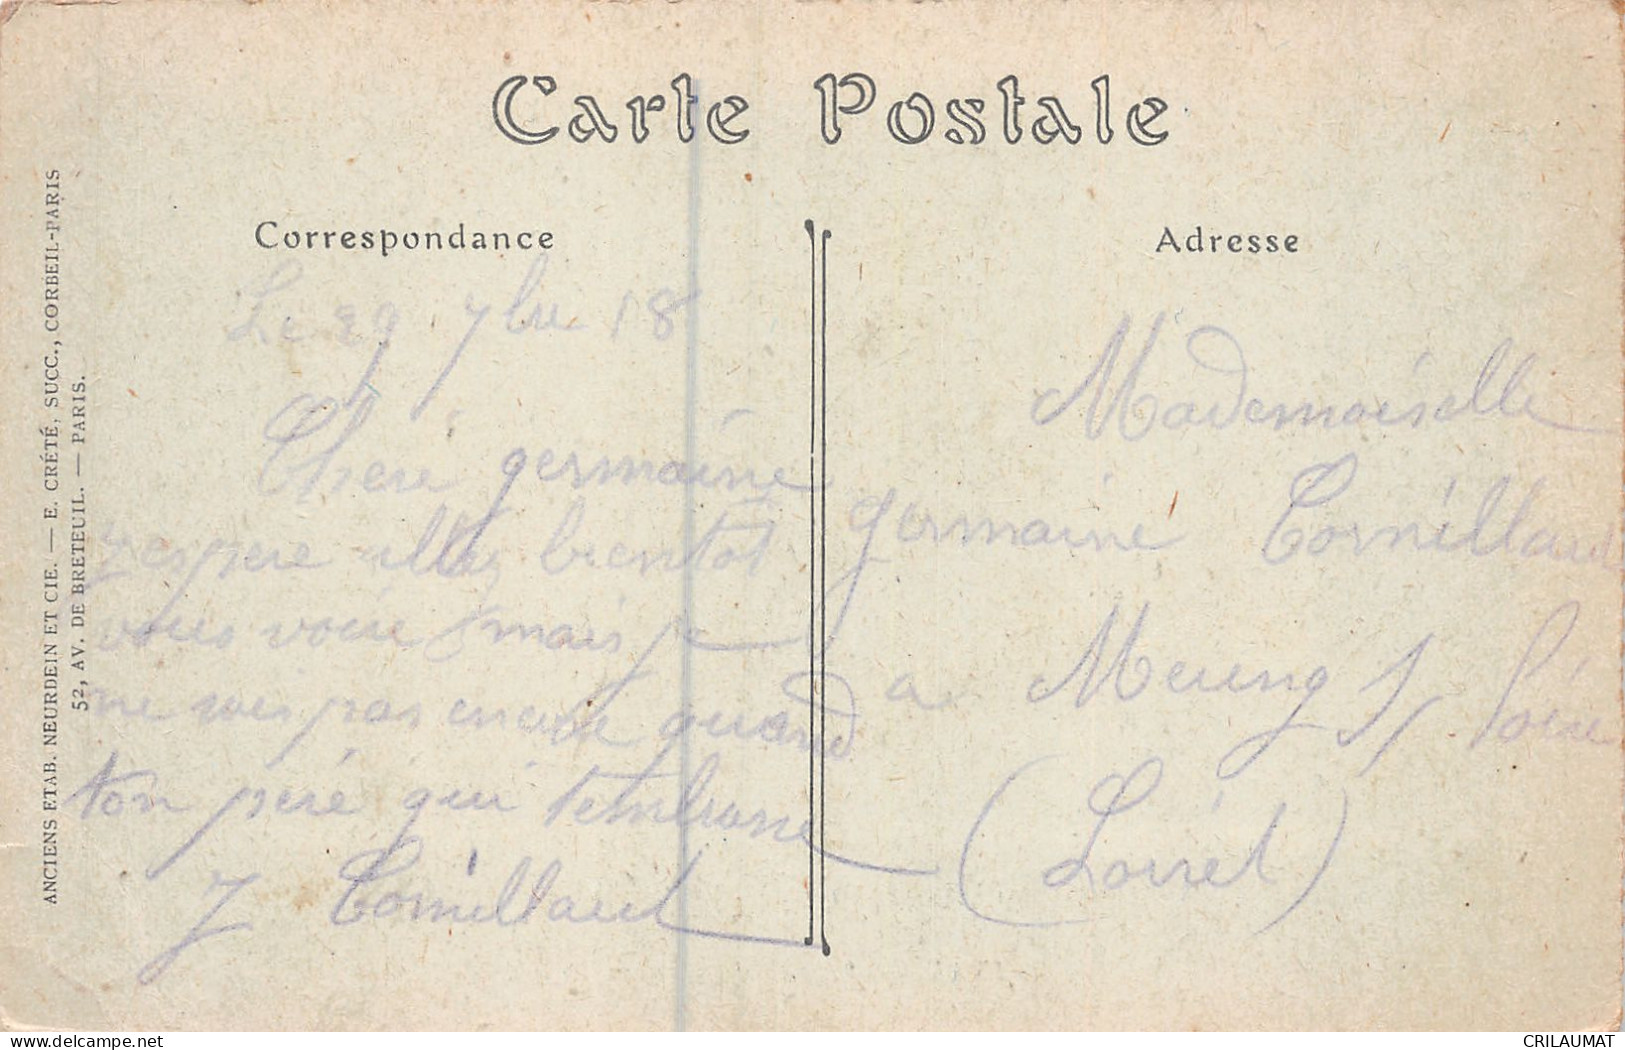 Carte Postale
ANCIENS ETAB. NEURDEIN ET CIE. — E. CRÉTÉ, SUCC., CORBEIL-PARIS
52, AV. DE BRETEUIL. — PARIS.
Correspondance
Le 29 7bre 18
Chere germaine
J'espere allez bientot
vous voire mais je
ne sais pas encore quand
ton pere qui t'embrasse
J Cornillaud
Adresse
Mademoiselle
germaine Cornillaud
a Meung s/ Loire
(Loiret)
www.delcampe.net
CRILAUMAT